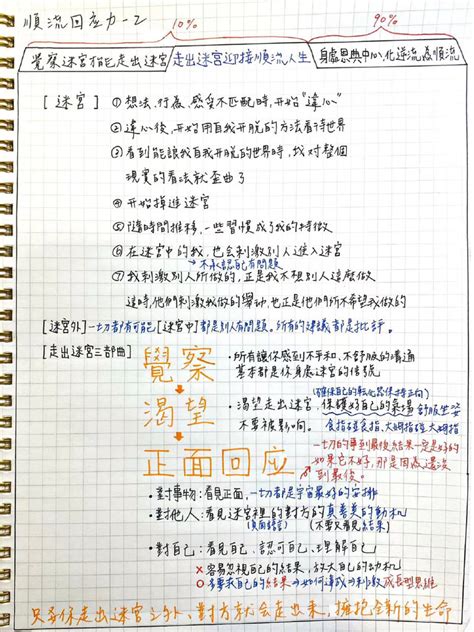 順流回应力-2
10%
90%
覺察迷宮才能走出迷宮
走出迷宮迎接順流人生
身處恩典中心,化逆流為順流
[迷宮] ①想法.行為.感受不匹配時,開始"違心"
②違心後,开始用自我开脱的方法看待世界
③看到能讓我自我开脱的世界時,我对整個
現實的看法就歪曲了
④开始掉進迷宮
⑤隨時間推移,一些習慣成了我的特徵
⑥在迷宮中的我,也会刺激別人進入迷宮
不承認自己有問題
⑦我刺激別人所做的,正是我不想別人這麼做
這時,他們刺激我做的舉动,也正是他們所不希望我做的
[迷宮外]一切都有可能[迷宮中]都是別人有問題。所有的建議都是批評。
[走出迷宮三部曲]
覺察
·所有讓你感到不平和、不舒服的溝通
基本都是你身處迷宮的信號
渴望
(確保自己的転化器保持正向)
·渴望走出迷宮,保護好自己的氣場
舒服坐姿
不要被影响。
食指碰食指、大姆指碰大姆指
正面回应
一切的事到最後結果一定是好的
如果它不好,那是因為還沒
到最後。
·對事物:看見正面,一切都是宇宙最好的安排
·對他人:看見迷宮裡的對方的真善美的動机
(負面語言)
(不要又看見結果)
·對自己:看見自己、認可自己、理解自己
×容易忽視自己的結果,放大自己的动机
成長型思維
只要你走出迷宮之外、對方就会走出來,擁抱全新的生命